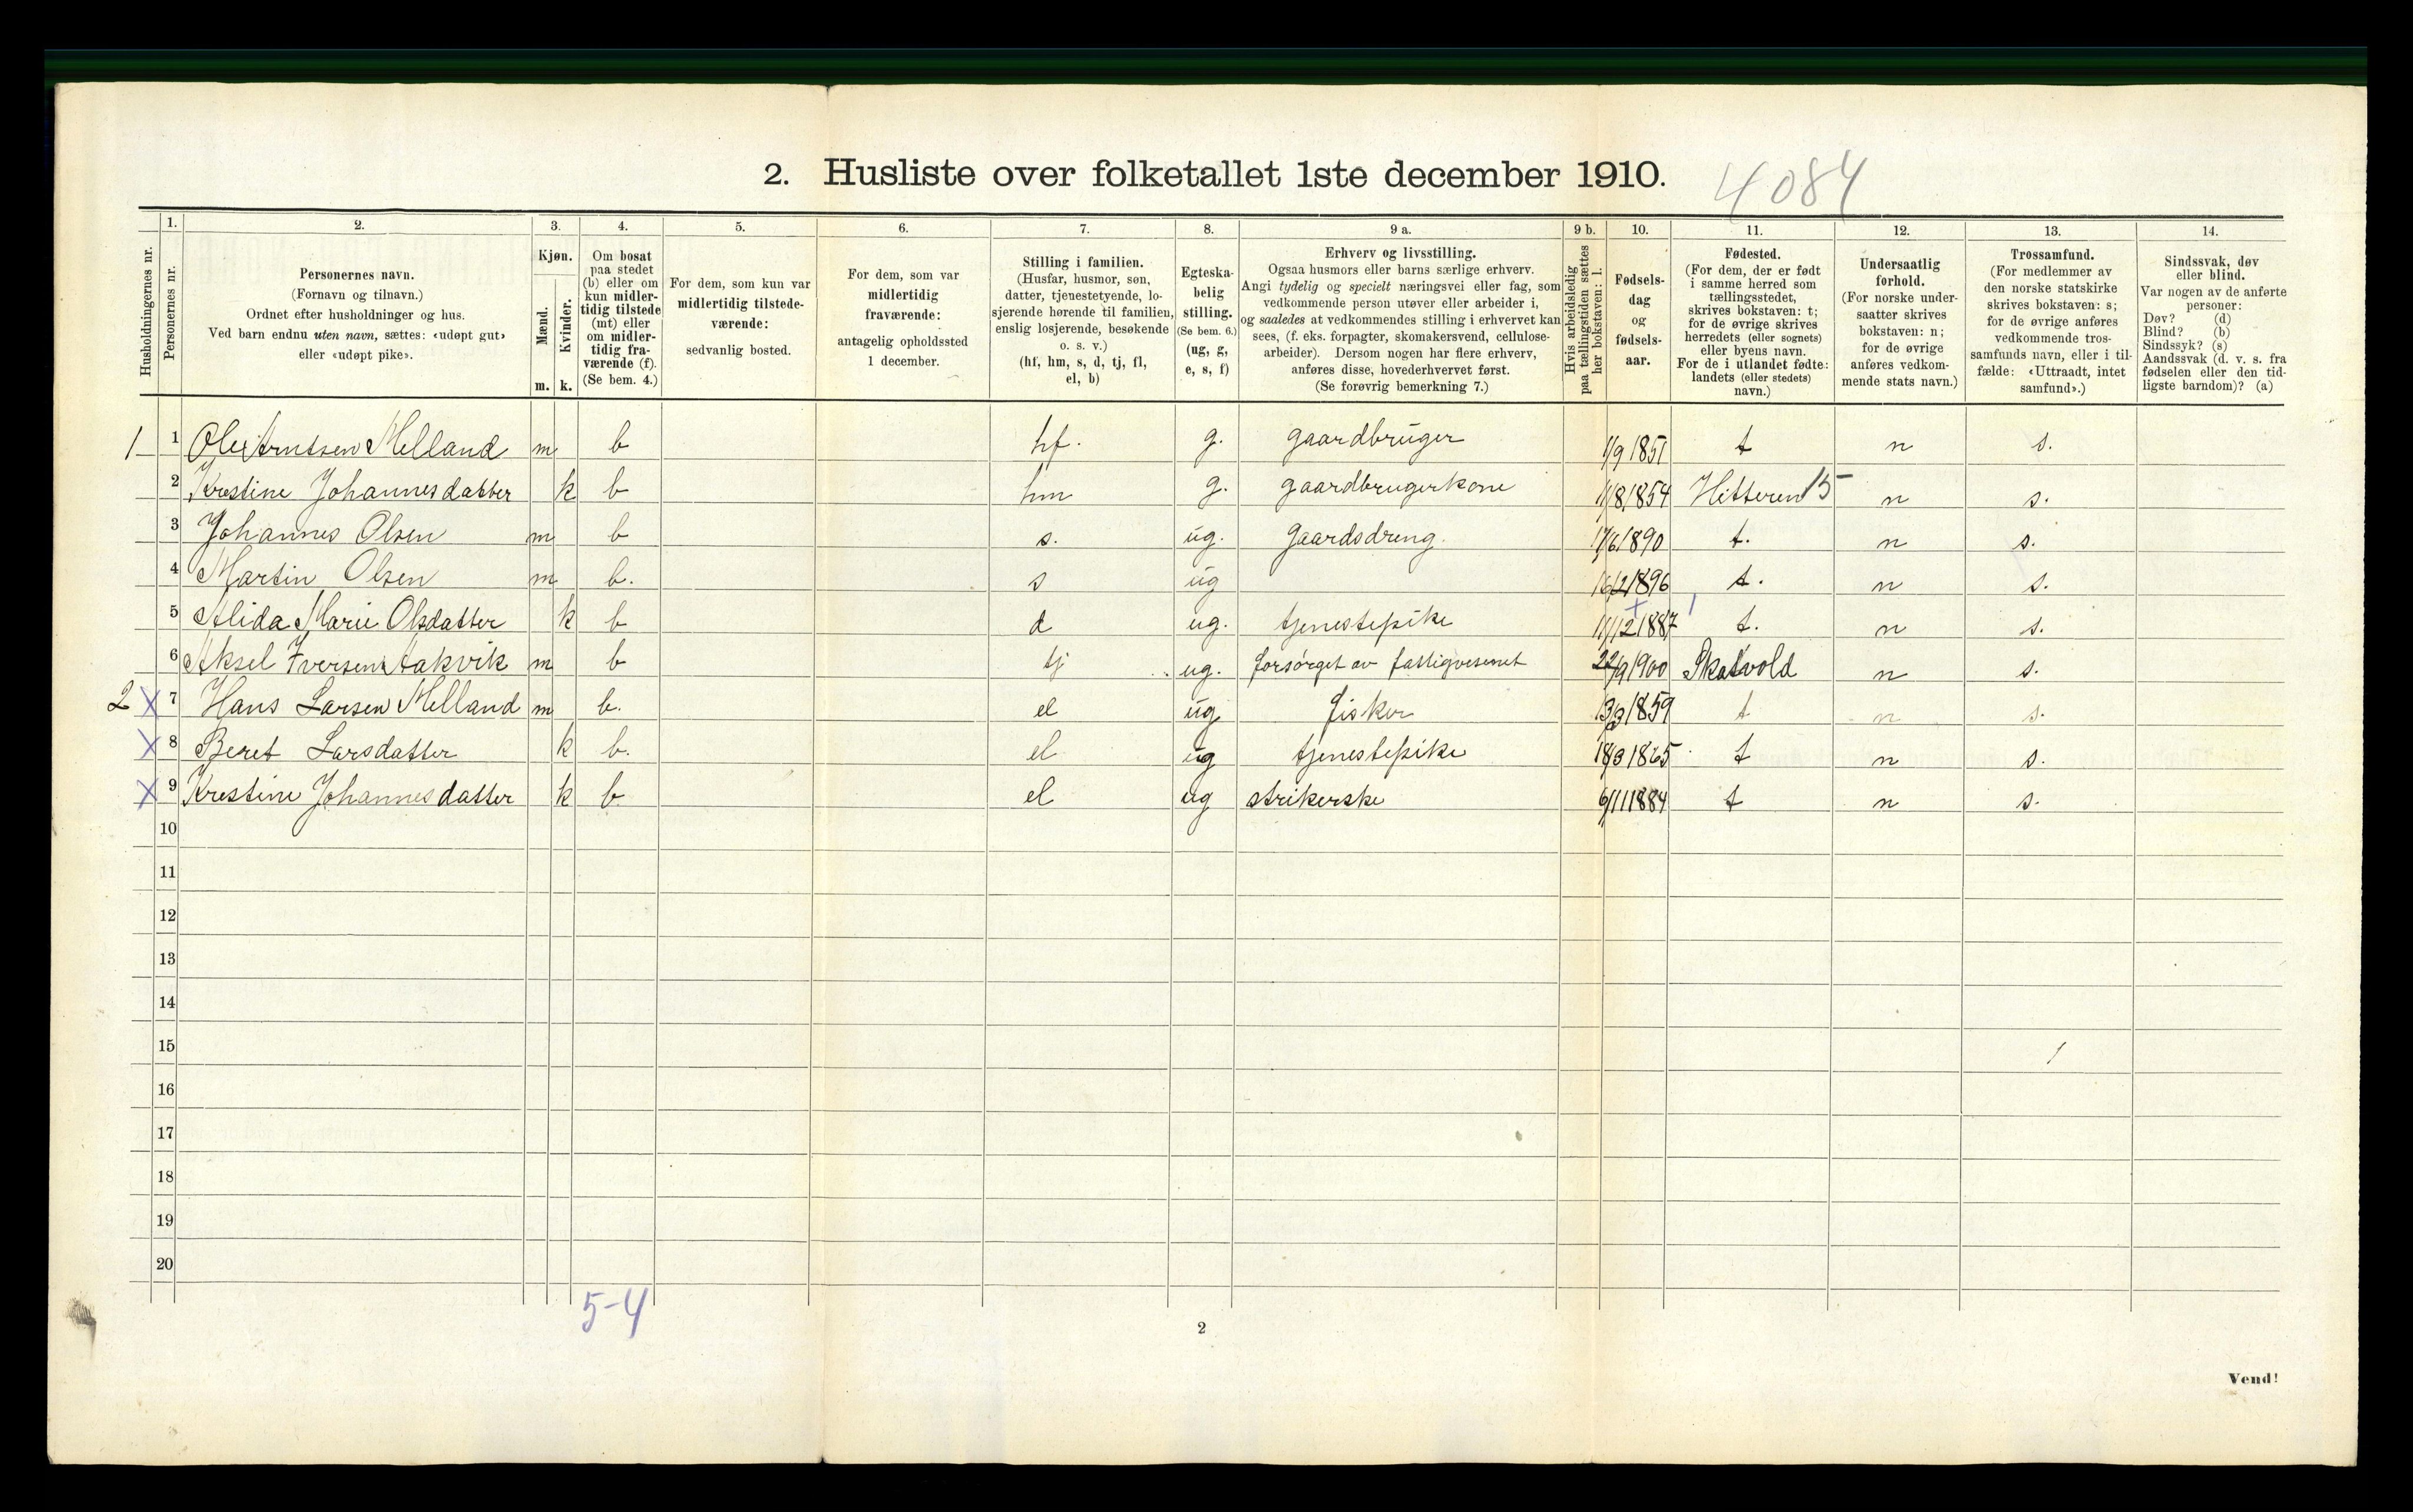 2. Husliste over folketallet 1ste december 1910.
4084
Husholdningernes nr.
1.
Personernes nr.
2.
Personernes navn.
(Fornavn og tilnavn.)
Ordnet efter husholdninger og hus.
Ved barn endnu uten navn, sættes: «udøpt gut»
eller «udøpt pike».
3.
Kjøn.
Mænd.
Kvinder.
m. k.
4.
Om bosat
paa stedet
(b) eller om
kun midler-
tidig tilstede
(mt) eller
om midler-
tidig fra-
værende (f).
(Se bem. 4.)
5.
For dem, som kun var
midlertidig tilstede-
værende:
sedvanlig bosted.
6.
For dem, som var
midlertidig
fraværende:
antagelig opholdssted
1 december.
7.
Stilling i familien.
(Husfar, husmor, søn,
datter, tjenestetyende, lo-
sjerende hørende til familien,
enslig losjerende, besøkende
o. s. v.)
(hf, hm, s, d, tj, fl,
el, b)
8.
Egteska-
belig
stilling.
(Se bem. 6.)
(ug, g,
e, s, f)
9 a.
Erhverv og livsstilling.
Ogsaa husmors eller barns særlige erhverv.
Angi tydelig og specielt næringsvei eller fag, som
vedkommende person utøver eller arbeider i,
og saaledes at vedkommendes stilling i erhvervet kan
sees, (f. eks. forpagter, skomakersvend, cellulose-
arbeider). Dersom nogen har flere erhverv,
anføres disse, hovederhvervet først.
(Se forøvrig bemerkning 7.)
9 b.
Hvis arbeidsledig
paa tællingstiden sættes
her bokstaven: l.
10.
Fødsels-
dag
og
fødsels-
aar.
11.
Fødested.
(For dem, der er født
i samme herred som
tællingsstedet,
skrives bokstaven: t;
for de øvrige skrives
herredets (eller sognets)
eller byens navn.
For de i utlandet fødte:
landets (eller stedets)
navn.)
12.
Undersaatlig
forhold.
(For norske under-
saatter skrives
bokstaven: n;
for de øvrige
anføres vedkom-
mende stats navn.)
13.
Trossamfund.
(For medlemmer av
den norske statskirke
skrives bokstaven: s;
for de øvrige anføres
vedkommende tros-
samfunds navn, eller i til-
fælde: «Uttraadt, intet
samfund».)
14.
Sindssvak, døv
eller blind.
Var nogen av de anførte
personer:
Døv? (d)
Blind? (b)
Sindssyk? (s)
Aandssvak (d. v. s. fra
fødselen eller den tid-
ligste barndom)? (a)
1 1 Ole Arntsen Melland m b hf. g. gaardbruger 1/9 1851 t n s.
2 Krestine Johannesdatter k b hm g. gaardbrugerkone 11/8 1854 Hitteren 15 n s.
3 Johannes Olsen m b s. ug. Gaardsdreng. 17/6 1890 t. n s.
4 Martin Olsen m b. s ug 16/2 1896 t. n s.
5 Alida Marie Olsdatter k b d ug. tjenestepike 11/12 1887 t. n s.
6 Aksel Iversen Aakvik m b tj ug. forsørget av fattigvesenet 22/9 1900 Skatvold n s.
2 X 7 Hans Larsen Melland m b. el ug fisker 13/3 1859 t n s.
X 8 Beret Larsdatter k b. el ug tjenestepike 18/3 1865 t n s.
X 9 Krestine Johannesdatter k b el ug strikerske 6/11 1884 t n s.
10
11
12
13
14
15
16
17
18
19
20
5-4
2
Vend!